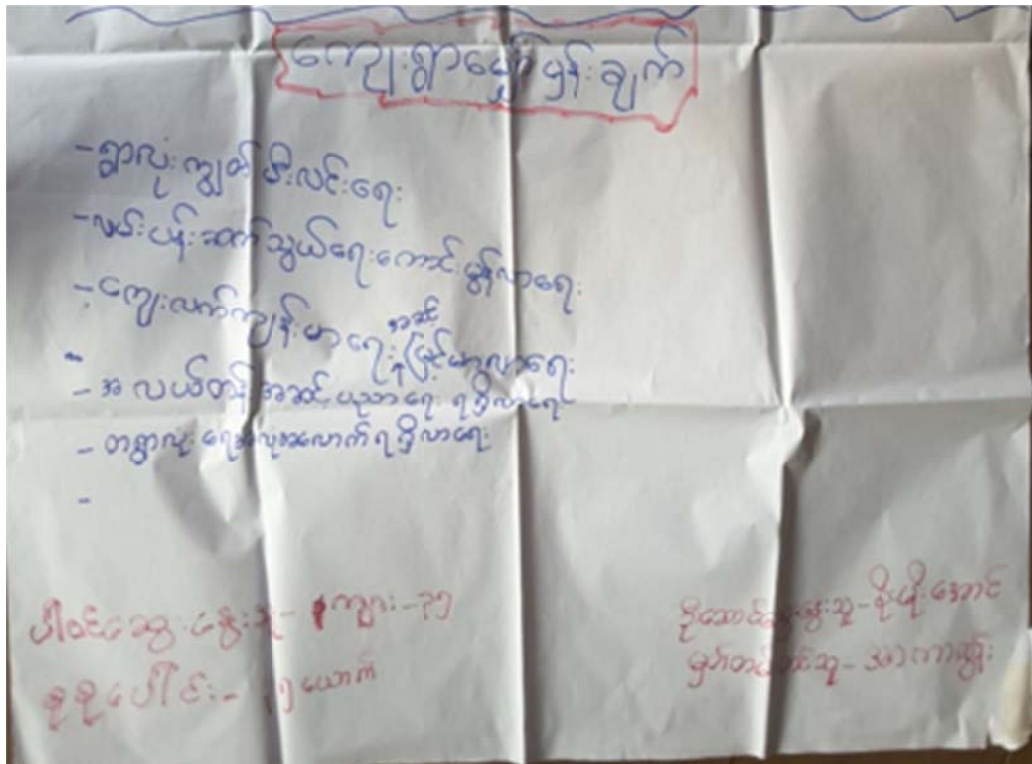 ကျေးရွာမျှော်မှန်းချက်
- ရွာလုံးကျွတ် မီးလင်းရေး
- လမ်းပန်းဆက်သွယ်ရေးကောင်းမွန်လာရေး
- ကျေးလက်ကျန်းမာရေး အဆင့်မြင့်မားလာရေး
- အလယ်တန်းအဆင့် ပညာရေး ရရှိလာရေး
- တစ်ရွာလုံး ရေအလုံအလောက်ရရှိလာရေး
-
ပါဝင်ဆွေးနွေးသူ - ကျား - ၃၅
စုစုပေါင်း - ၃၅ ယောက်
ဦးဆောင်ဆွေးနွေးသူ - စိုးမိုးအောင်
မှတ်တမ်းတင်သူ - အာကာထွန်း